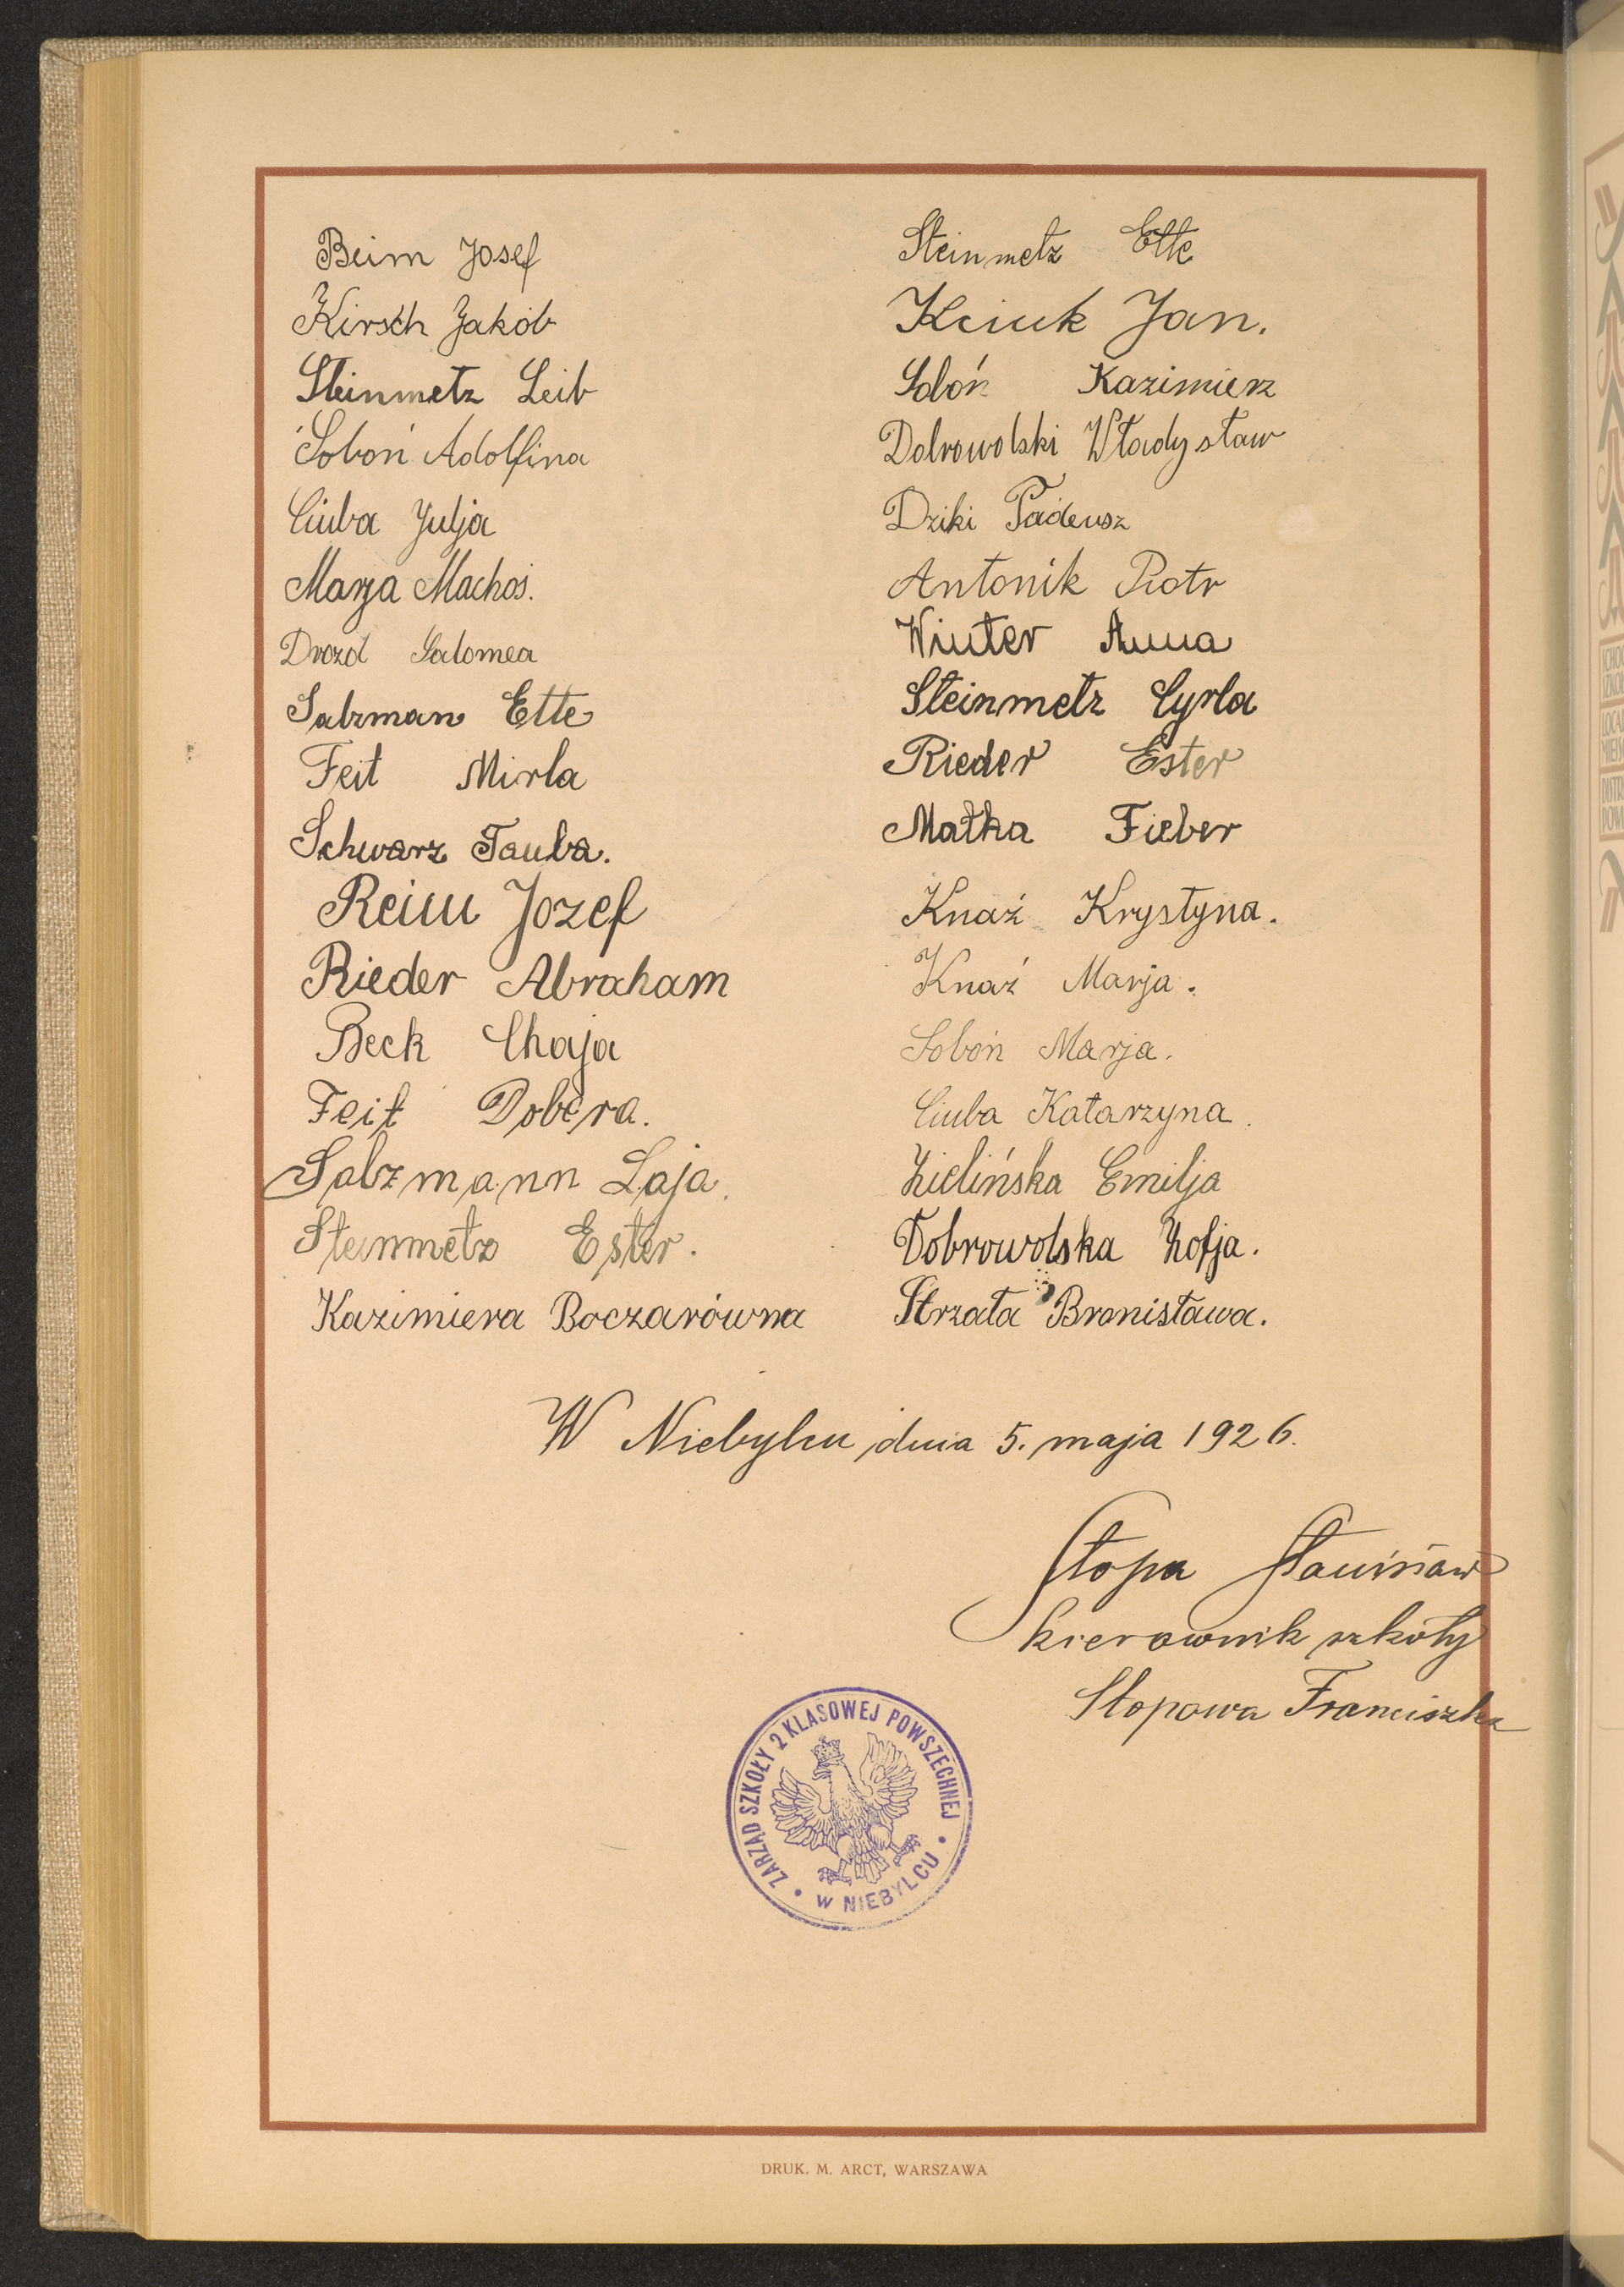 Beim Josef
Kirsch Jakób
Steinmetz Leib
Soboń Adolfina
Ciuba Julja
Marja Machoś.
Drozd Salomea
Salzman Ette
Feit Mirla
Schwarz Tauba.
Reim Jozef
Rieder Abraham
Beck Chaja
Feit Dobera.
Salzmann Laja.
Steinmetz Ester.
Kazimiera Boczarówna
Steinmetz Ette
Kciuk Jan.
Soboń Kazimierz
Dobrowolski Władysław
Dziki Tadeusz
Antonik Piotr
Winter Anna
Steinmetz Cyrla
Rieder Ester
Małka Fieber
Knaź Krystyna.
Knaź Marja.
Soboń Marja.
Ciuba Katarzyna.
Zielińska Emilja
Dobrowolska Zofja.
Strzała Bronisława.
W Niebylcu, dnia 5. maja 1926.
Stopa Stanisław
kierownik szkoły
Stopowa Franciszka
ZARZĄD SZKOŁY 2 KLASOWEJ POWSZECHNEJ
• W NIEBYLCU •
DRUK. M. ARCT, WARSZAWA